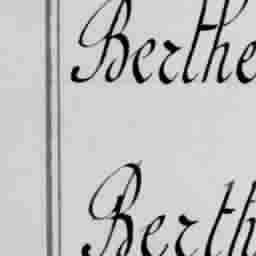 Berthe
Berth